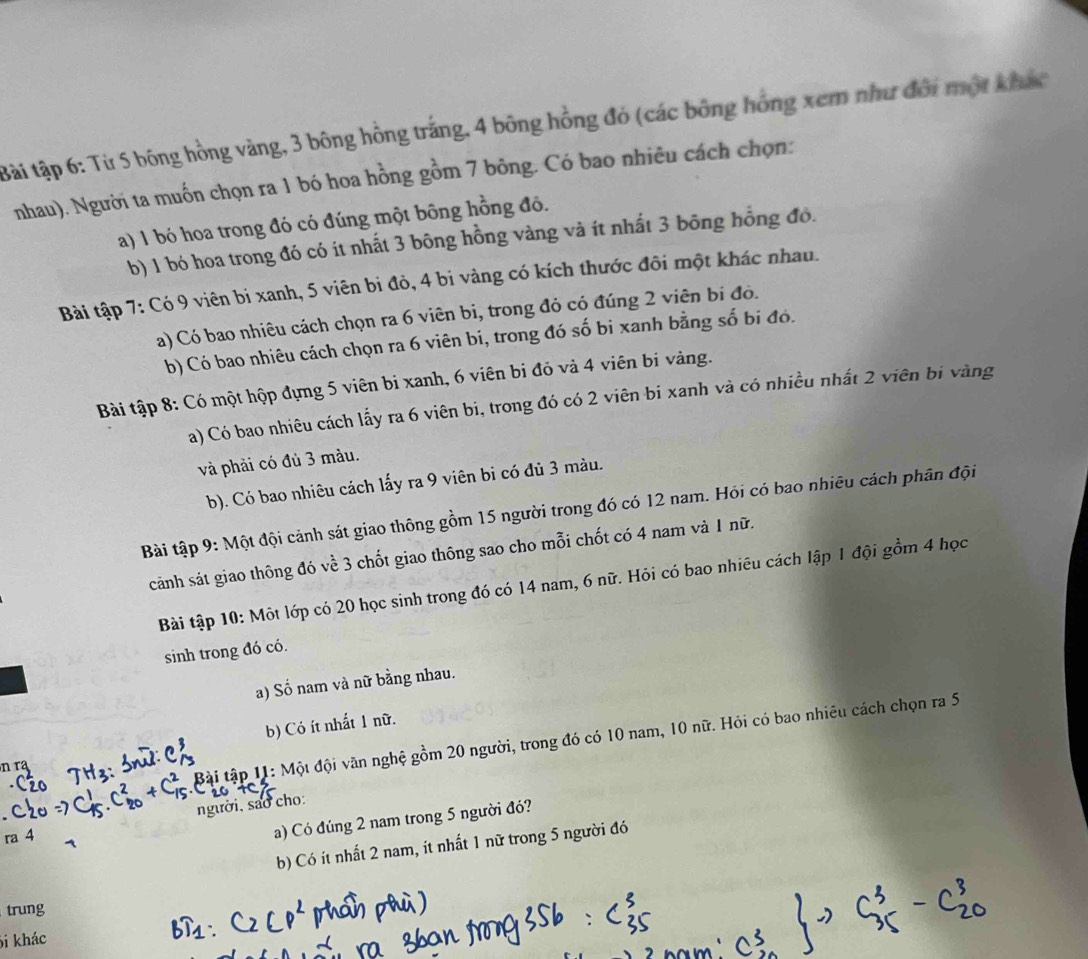 Bài tập 6: Từ 5 bông hồng vàng, 3 bông hồng trắng, 4 bông hồng đỏ (các bông hồng xem như đôi một khác
nhau). Người ta muốn chọn ra 1 bó hoa hồng gồm 7 bông. Có bao nhiêu cách chọn:
a) 1 bó hoa trong đó có đúng một bông hồng đỏ.
b) 1 bó hoa trong đó có ít nhất 3 bông hồng vàng và ít nhất 3 bông hồng đỏ.
Bài tập 7: Có 9 viên bi xanh, 5 viên bi đỏ, 4 bi vàng có kích thước đôi một khác nhau.
a) Có bao nhiêu cách chọn ra 6 viên bi, trong đó có đúng 2 viên bi đỏ.
b) Có bao nhiêu cách chọn ra 6 viên bi, trong đó số bi xanh bằng số bi đỏ.
Bài tập 8: Có một hộp đựng 5 viên bi xanh, 6 viên bi đỏ và 4 viên bi vàng.
a) Có bao nhiêu cách lấy ra 6 viên bi, trong đó có 2 viên bi xanh và có nhiều nhất 2 viên bi vàng
và phải có đủ 3 màu.
b). Có bao nhiêu cách lấy ra 9 viên bi có đủ 3 màu.
Bài tập 9: Một đội cảnh sát giao thông gồm 15 người trong đó có 12 nam. Hỏi có bao nhiêu cách phân đội
cảnh sát giao thông đó về 3 chốt giao thông sao cho mỗi chốt có 4 nam và 1 nữ.
Bài tập 10: Môt lớp có 20 học sinh trong đó có 14 nam, 6 nữ. Hỏi có bao nhiêu cách lập 1 đội gồm 4 học
sinh trong đó có.
a) Số nam và nữ bằng nhau.
b) Có ít nhất 1 nữ.
n ra
.C²₂₀ TH3: 3nữ: C³₁₅
Bài tập 11: Một đội văn nghệ gồm 20 người, trong đó có 10 nam, 10 nữ. Hỏi có bao nhiêu cách chọn ra 5
.C¹₂₀ => C¹₁₅.C²₂₀ + C²₁₅.C¹₂₀ + C³₁₅
người, sao cho:
ra 4
a) Có đúng 2 nam trong 5 người đó?
b) Có ít nhất 2 nam, ít nhất 1 nữ trong 5 người đó
trung
BT1: C2 (P² phần phù)
ra 3ban trong 35b : C³₃₅ } -> C³₃₅ - C³₂₀
ôi khác
nam: C³₂₀